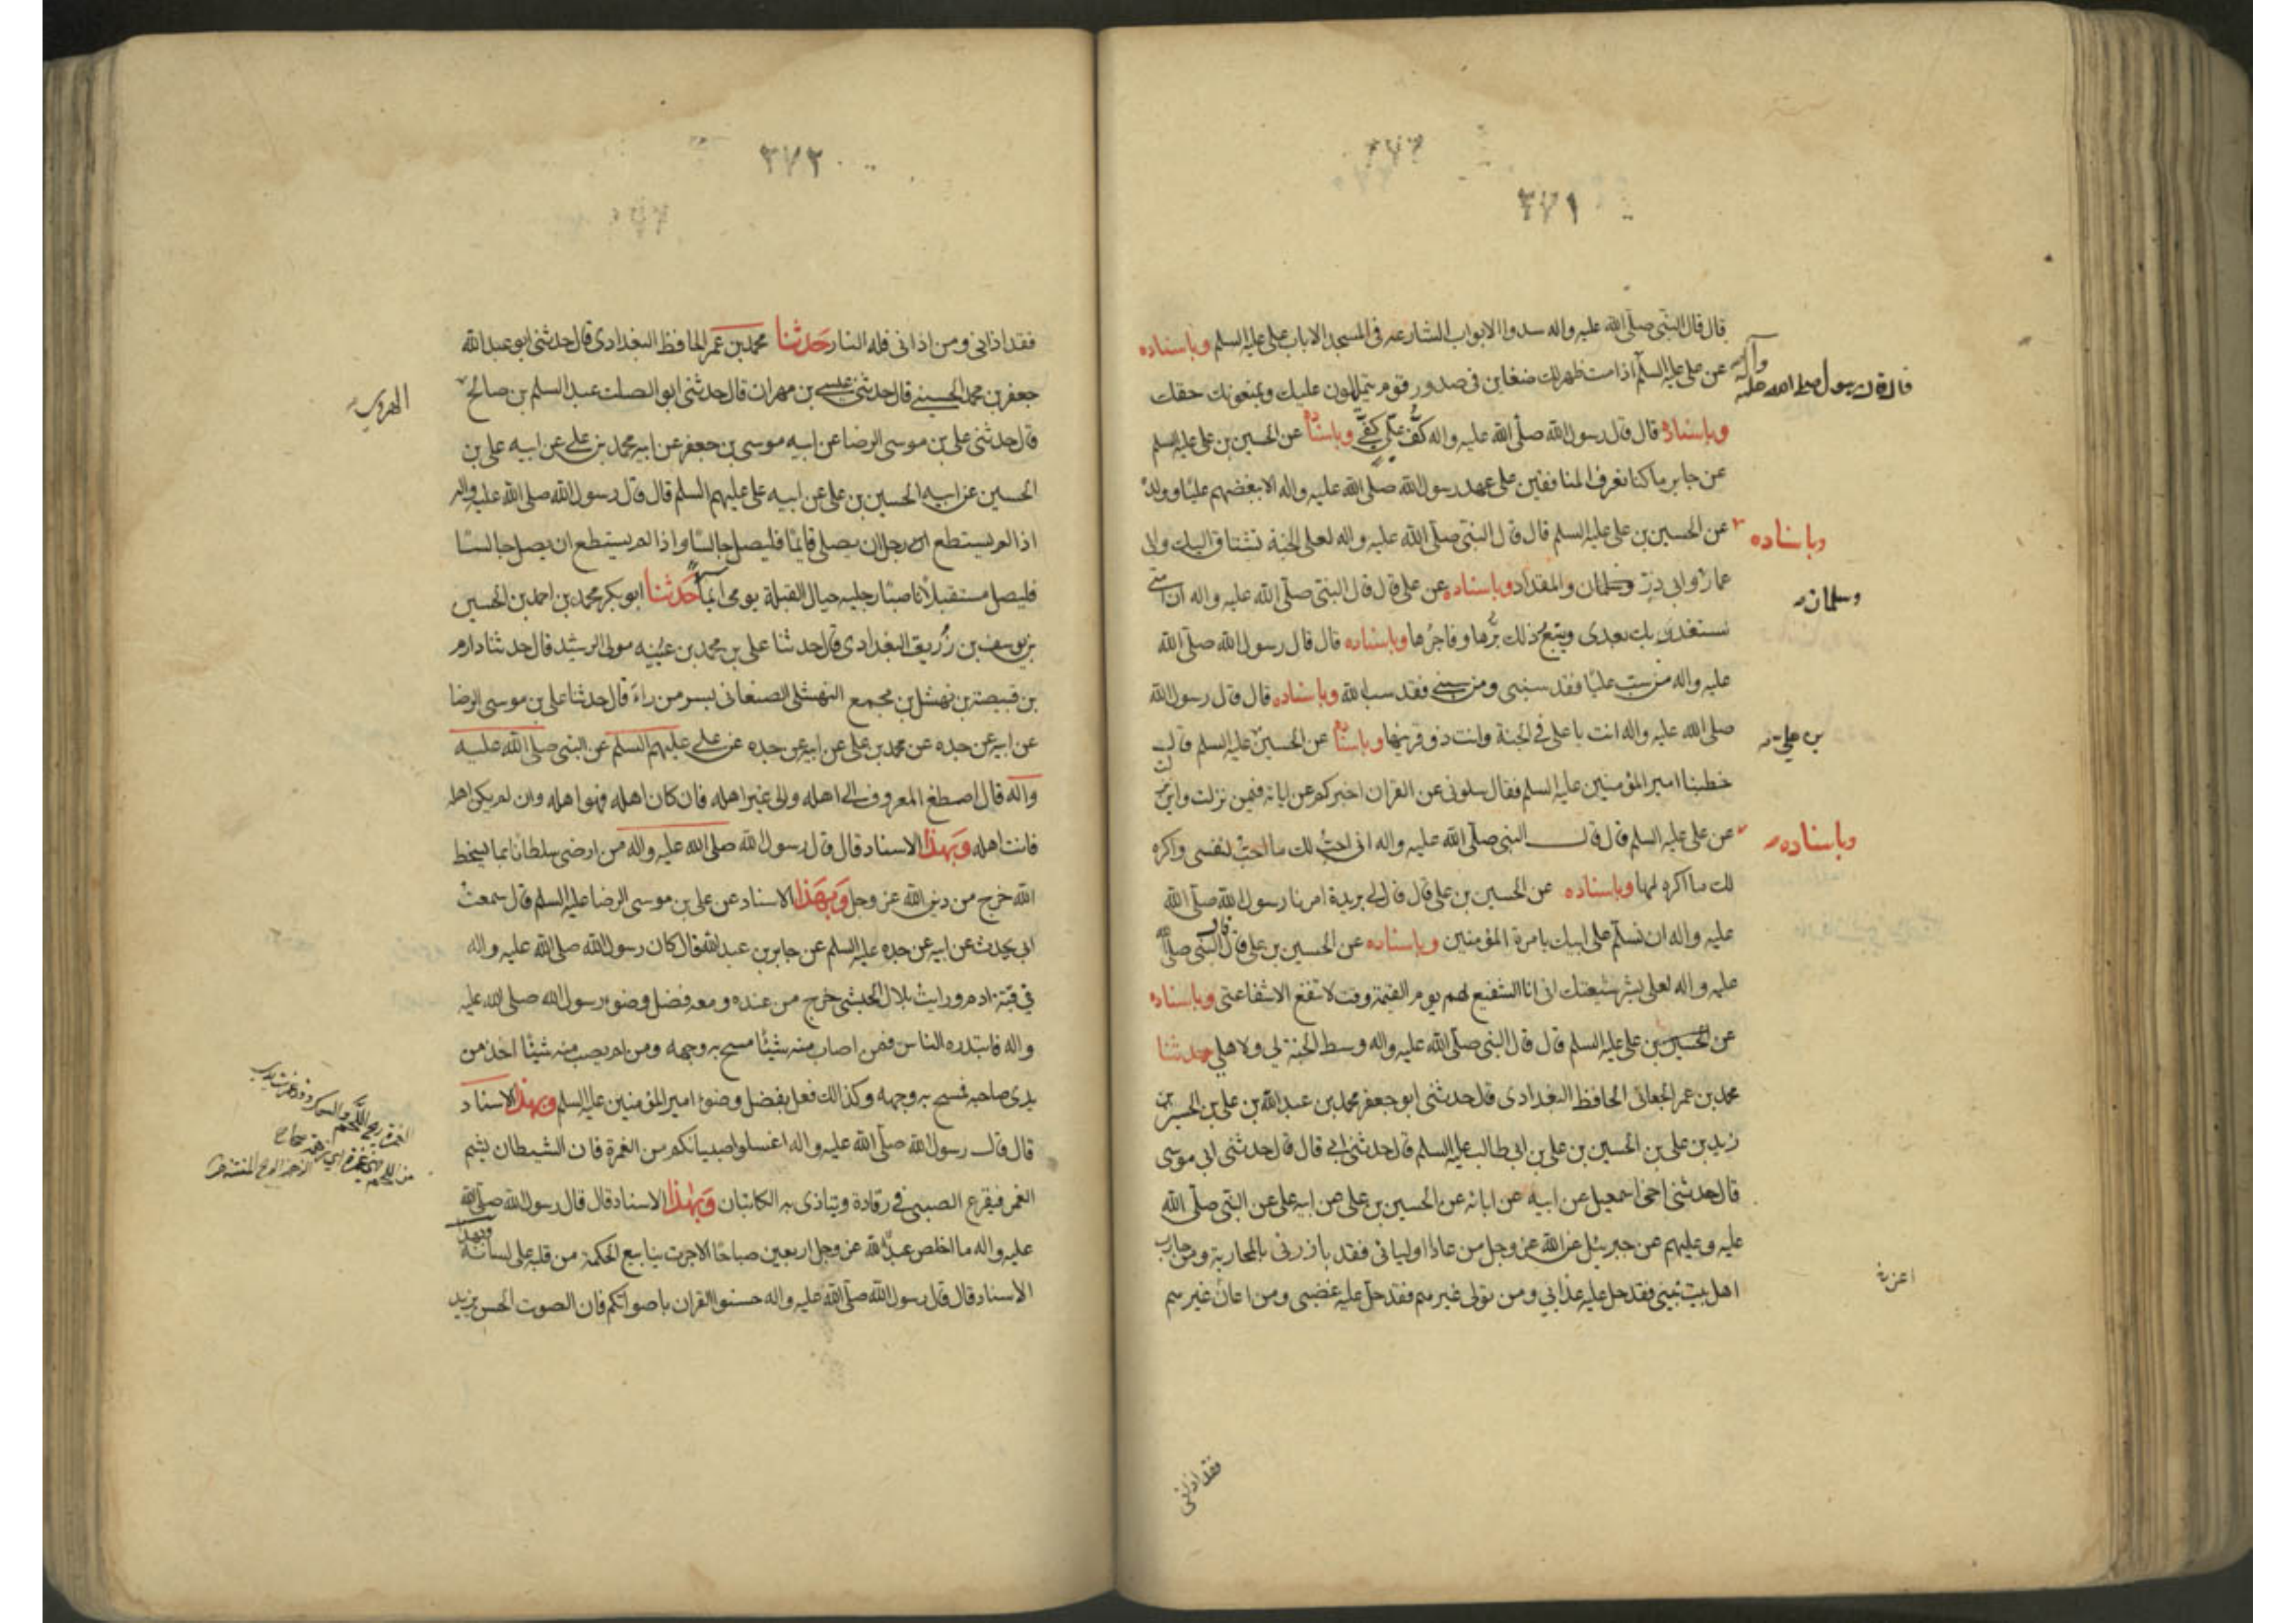 ٣٧١
قال قال النبى صلى الله عليه واله سدوا الابواب الشارعه فى المسجد الا باب على عليه السلم وباسناده
عن على عليه السلم اذا مت ظهر لك ضغاين فى صدور قوم يتمالون عليك ويمنعونك حقك
وباسناده قال قال رسول الله صلى الله عليه واله كف على كفى وباسناده عن الحسين بن على عليه السلم
عن جابر ما كنا نعرف المنافقين على عهد رسول الله صلى الله عليه واله الا ببغضهم عليا وولده
وباسناده عن الحسين بن على عليه السلم قال قال النبى صلى الله عليه واله لعلى الجنة تشتاق اليك والى
عمار وابى ذر وسلمان والمقداد وباسناده عن على قال قال النبى صلى الله عليه واله ان امتى
ستغدر بك بعدى ويتبع ذلك برها وفاجرها وباسناده قال قال رسول الله صلى الله
عليه واله من سب عليا فقد سبنى ومن سبنى فقد سب الله وباسناده قال قال رسول الله
صلى الله عليه واله انت يا على فى الجنة وانت ذو قرنيها وباسناده عن الحسين بن على عليه السلم قال
خطبنا امير المؤمنين عليه السلم فقال سلونى عن القران اخبركم عن اياته فيمن نزلت واين نزلت
وباسناده عن على عليه السلم قال قال النبى صلى الله عليه واله انى احب لك ما احب لنفسى واكره
لك ما اكره لها وباسناده عن الحسين بن على قال قال لى بريدة امرنا رسول الله صلى الله
عليه واله ان نسلم على ابيك بامرة المؤمنين وباسناده عن الحسين بن على قال قال النبى صلى الله
عليه واله لعلى بشر شيعتك انى انا الشفيع لهم يوم القيمة وقت لا تنفع الا شفاعتى وباسناده
عن الحسين بن على عليه السلم قال قال النبى صلى الله عليه واله وسط الجنة لى ولاهلى حدثنا
محمد بن عمر الجعابى الحافظ البغدادى قال حدثنى ابو جعفر محمد بن عبد الله بن على بن الحسين بن
زيد بن على بن الحسين بن على بن ابى طالب عليه السلم قال حدثنى ابى قال قال حدثنى ابى موسى
قال حدثنى اخى اسمعيل عن ابيه عن ابائه عن الحسين بن على عن ابيه على عن النبى صلى الله
عليه وعليهم عن جبرئيل عن الله عز وجل من عادا اوليائى فقد بارزنى بالمحاربة ومن حارب
اهل بيت نبيى فقد حل عليه عذابى ومن تولى غيرهم فقد حل عليه غضبى ومن اعان غيرهم
قال قال رسول صلى الله عليه وآله
وسلمان
بن على
فقد اذانى
٣٧٢
فقد اذانى ومن اذانى فله النار حدثنا محمد بن عمر الحافظ البغدادى قال حدثنى ابو عبد الله
جعفر بن محمد الحسينى قال حدثنى عيسى بن مهران قال حدثنى ابو الصلت عبد السلم بن صالح الهروى
قال حدثنى على بن موسى الرضا عن ابيه موسى بن جعفر عن ابيه محمد بن على عن ابيه على بن
الحسين عن ابيه الحسين بن على عن ابيه على عليهم السلم قال قال رسول الله صلى الله عليه واله
اذا لم يستطع الرجل ان يصلى قائما فليصل جالسا واذا لم يستطع ان يصل جالسا
فليصل مستقبلا ناصبا رجليه حيال القبلة يومى ايماً حدثنا ابو بكر محمد بن احمد بن الحسين
بن يوسف بن زريق البغدادى قال حدثنا على بن محمد بن عيينه مولى الرشيد قال حدثنا دارم
بن قبيصة بن نهشل بن مجمع النهشلى الصنعانى بسر من راى قال حدثنا على بن موسى الرضا
عن ابيه عن جده عن محمد بن على عن ابيه عن جده عن على عليهم السلم عن النبى صلى الله عليه
واله قال اصطنع المعروف الى اهله والى غير اهله فان كان اهله فهو اهله وان لم يكن اهله
فانت اهله وبهذا الاسناد قال قال رسول الله صلى الله عليه واله من ارضى سلطانا بما يسخط
الله خرج من دين الله عز وجل وبهذا الاسناد عن على بن موسى الرضا عليه السلم قال سمعت
ابى يحدث عن ابيه عن جده عليه السلم عن جابر بن عبد الله قال كان رسول الله صلى الله عليه واله
فى قبة ادم ورايت بلال الحبشى خرج من عنده ومعه فضل وضوء رسول الله صلى الله عليه
واله فابتدره الناس فمن اصاب منه شيئا مسح به وجهه ومن لم يصب منه شيئا اخذ من
يدى صاحبه فمسح به وجهه وكذلك فعل بفضل وضوء امير المؤمنين عليه السلم وبهذا الاسناد
قال قال رسول الله صلى الله عليه واله اغسلوا صبيانكم من الغمرة فان الشيطان يشم
الغمر فيفزع الصبى فى رقادة ويتاذى به الكاتبان وبهذا الاسناد قال قال رسول الله صلى الله
عليه واله ما اخلص عبد لله عز وجل اربعين صباحا الا جرت ينابيع الحكمة من قلبه على لسانه وبهذا
الاسناد قال قال رسول الله صلى الله عليه واله حسنوا القران باصواتكم فان الصوت الحسن يزيد